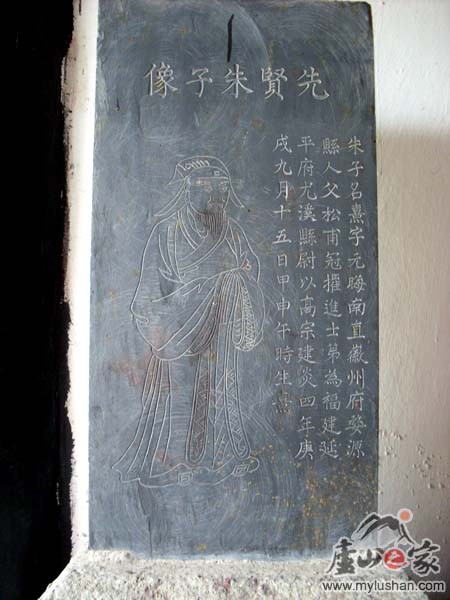 先賢朱子像
朱子名熹字元晦南直徽州府婺源
縣人父松甫冠擢進士第為福建延
平府尤溪縣尉以高宗建炎四年庚
戌九月十五日甲申午時生熹
庐山之家
www.mylushan.com